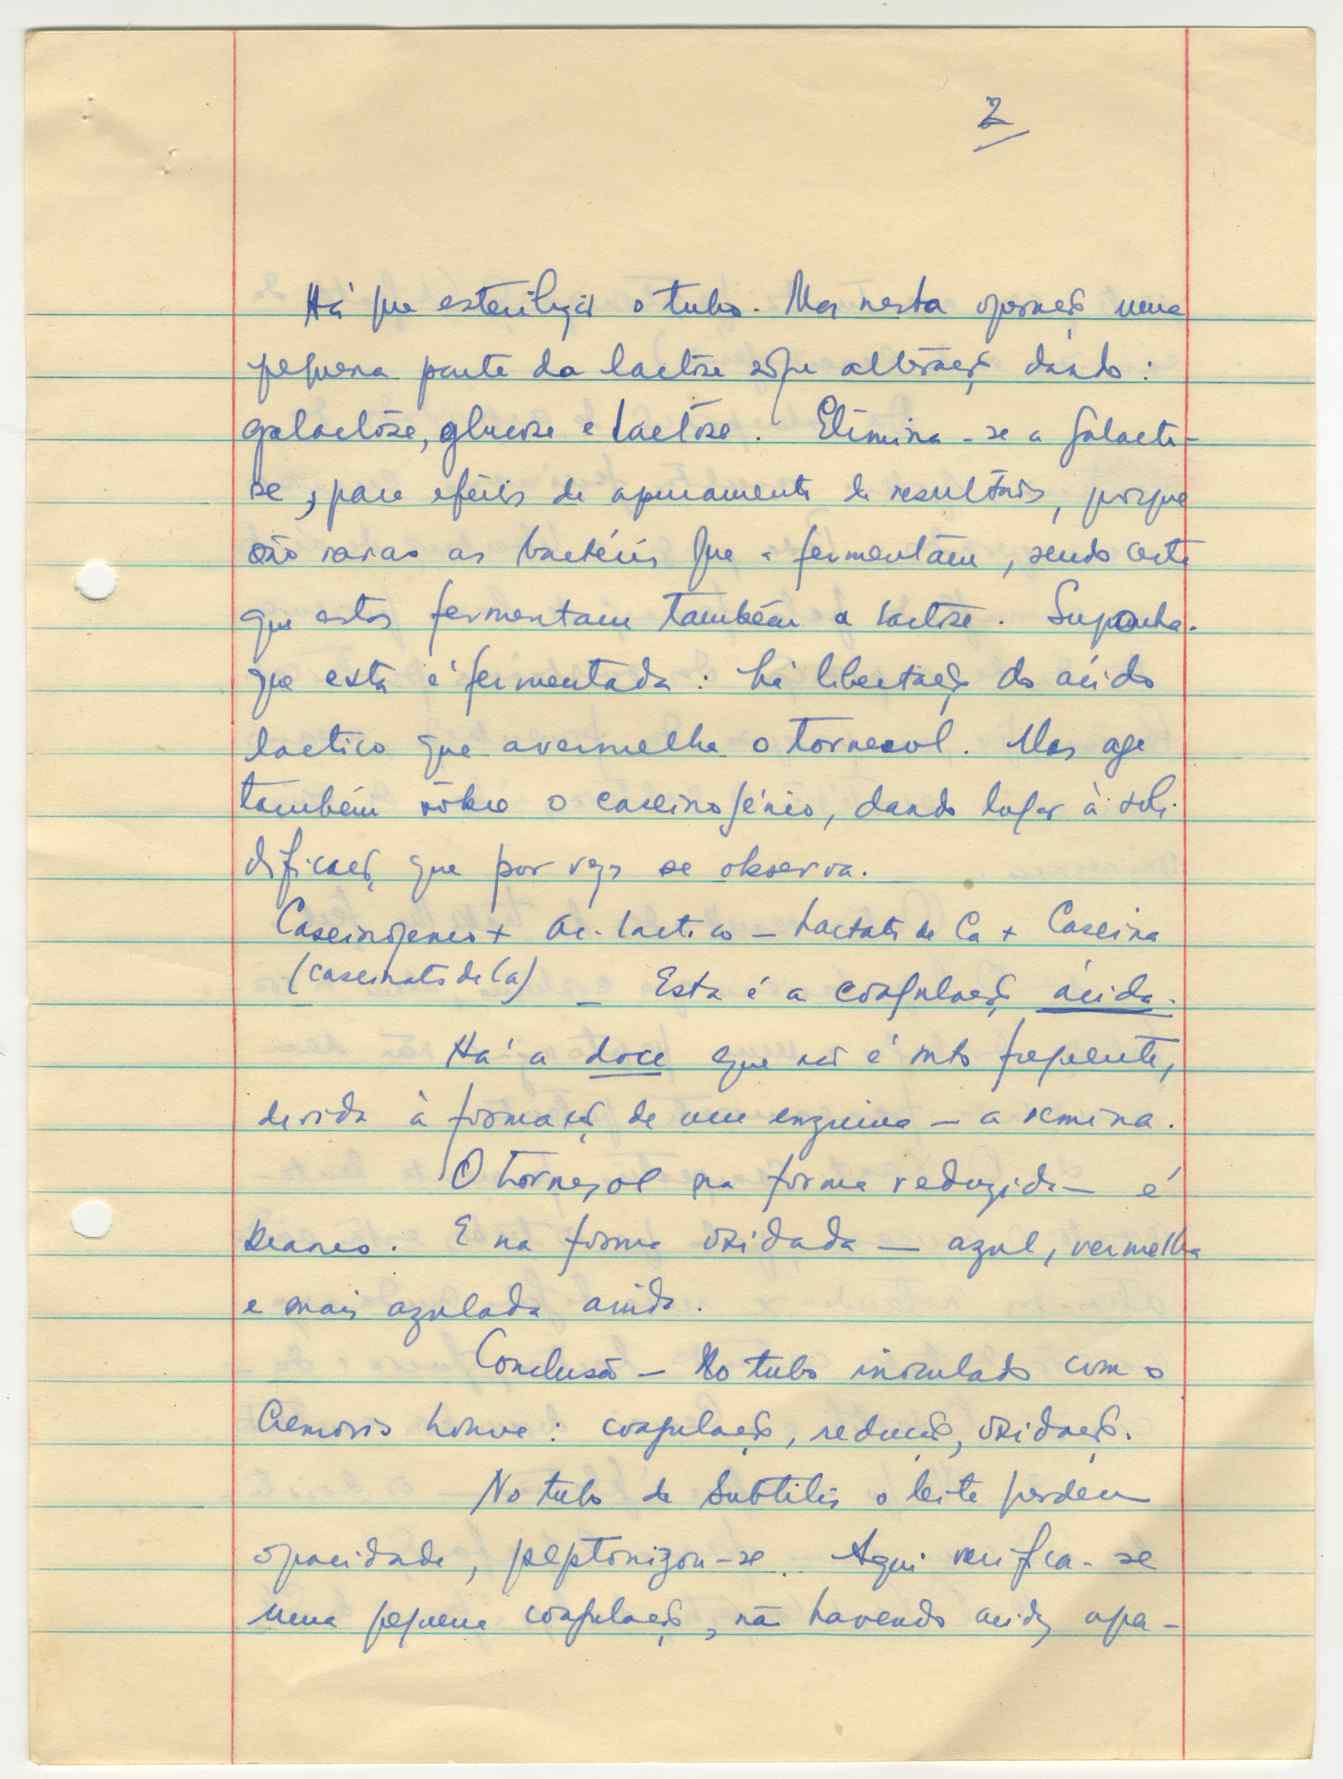 2
Há que esterilizar o tubo. Mas nesta operação uma
pequena parte da lactose sofre alteração dando:
galactóse, glucose e lactóse. Elimina-se a galacto-
se, para efeitos de apuramento de resultados, porque
são raras as bactérias que a fermentam, sendo certo
que estas fermentam também a lactose. Suponha-
que esta é fermentada: há libertação do ácido
lactico que avermelha o tornesol. Mas age
também sôbre o caseinogénio, dando lugar à soli-
dificação que por vezes se observa.
Caseinogeneo + ac. lactico — Lactato de Ca + Caseina
(caseinato de Ca) — Esta é a coagulação ácida.
Há a doce que não é mto frequente,
devida à formação de uma enzima — a remina.
O tornesol na forma reduzida — é
branco. E na forma oxidada — azul, vermelha
e mais azulada ainda.
Conclusão — No tubo inoculado com o
Cremoris houve: coagulação, redução, oxidação.
No tubo de Subtilis o leite perdeu
opacidade, peptonizou-se. Aqui verifica-se
uma pequena coagulação, não havendo acidez apa-